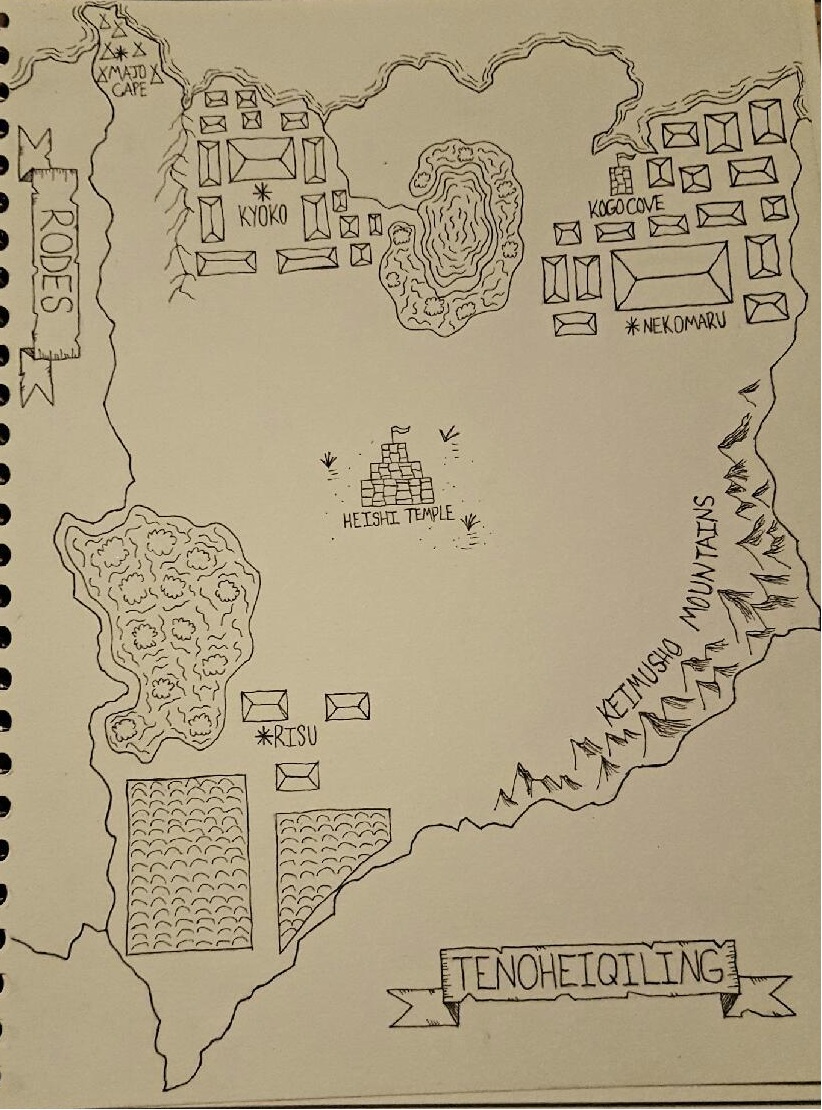 MAJO
CAPE
RODES
KYOKO
KOGO COVE
NEKOMARU
HEISHI TEMPLE
KEIMUSHO MOUNTAINS
RISU
TENOHEIQILING